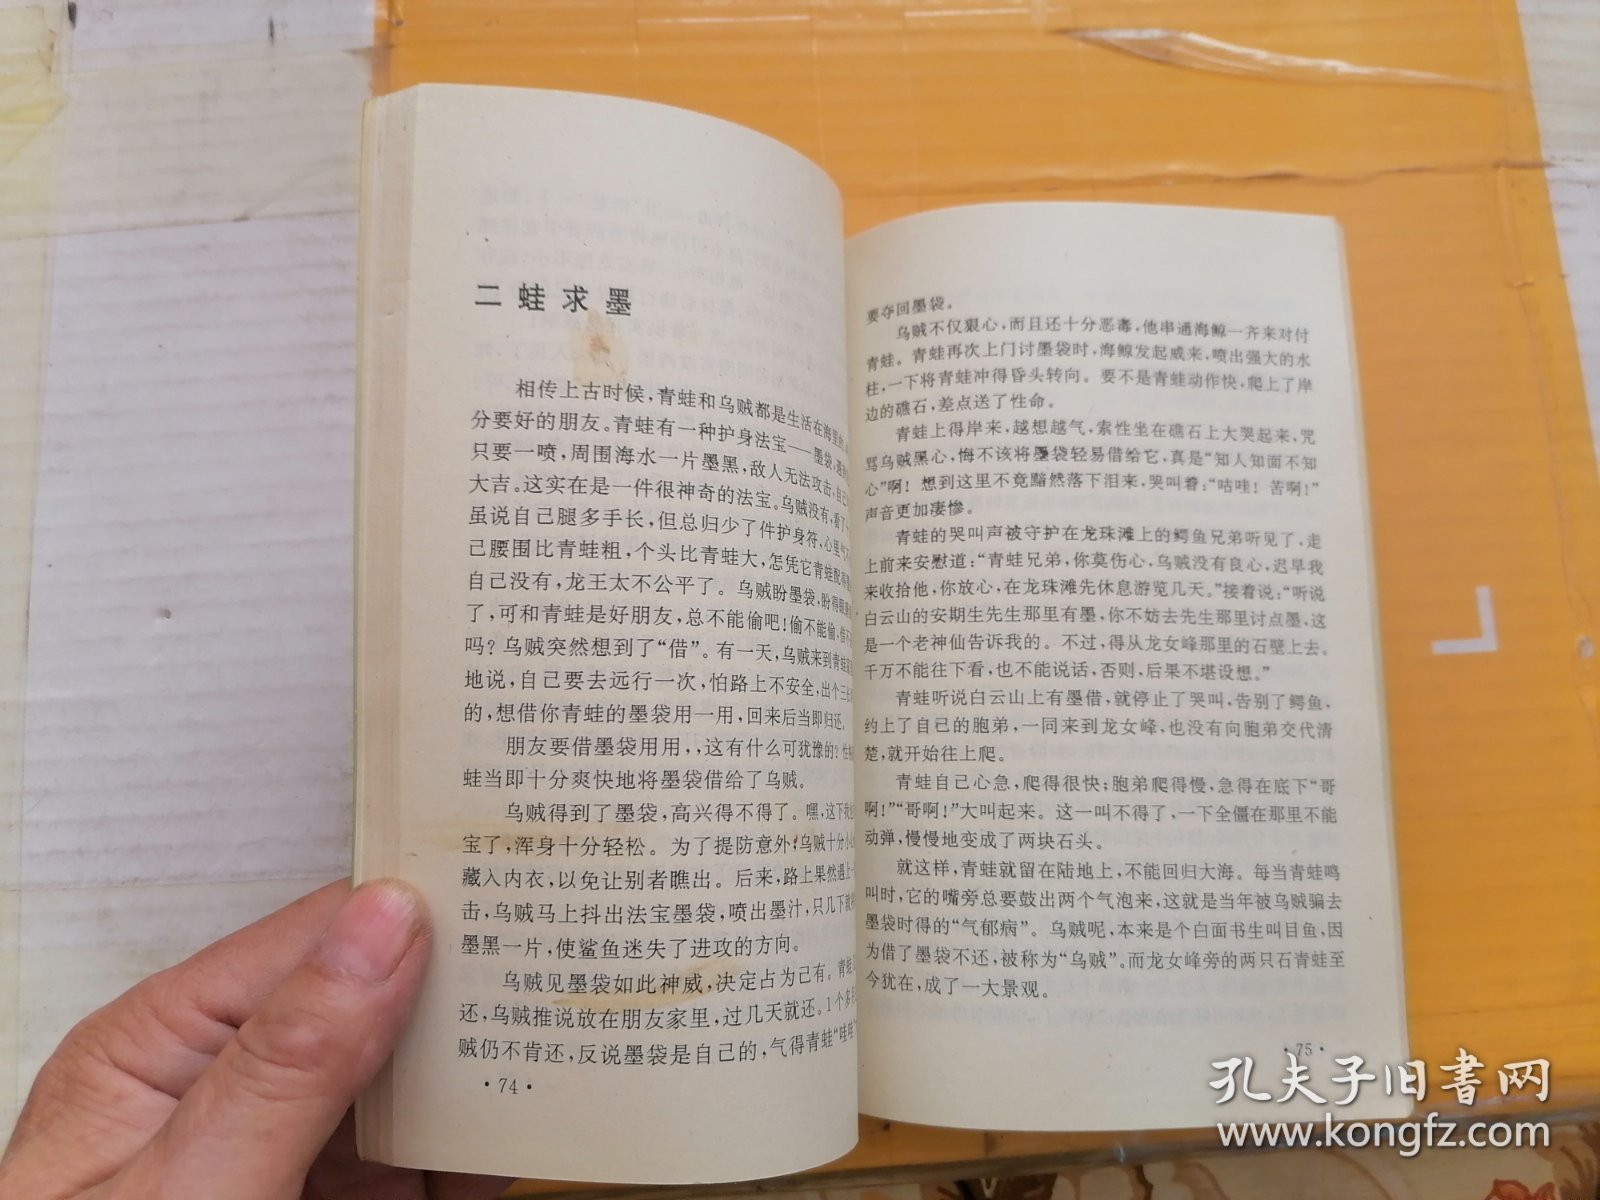 二蛙求墨
相传上古时候，青蛙和乌贼都是生活在海里的
分要好的朋友。青蛙有一种护身法宝——墨袋，遇到
只要一喷，周围海水一片墨黑，敌人无法攻击，自己
大吉。这实在是一件很神奇的法宝。乌贼没有，看了
虽说自己腿多手长，但总归少了件护身符，心里气
己腰围比青蛙粗，个头比青蛙大，怎凭它青蛙配得
自己没有，龙王太不公平了。乌贼盼墨袋，盼得眼
了，可和青蛙是好朋友，总不能偷吧！偷不能偷，借不
吗？乌贼突然想到了“借”。有一天，乌贼来到青蛙家
地说，自己要去远行一次，怕路上不安全，出个三长
的，想借你青蛙的墨袋用一用，回来后当即归还。
朋友要借墨袋用用，，这有什么可犹豫的？性
蛙当即十分爽快地将墨袋借给了乌贼。
乌贼得到了墨袋，高兴得不得了。嘿，这下我也
宝了，浑身十分轻松。为了提防意外，乌贼十分小心
藏入内衣，以免让别者瞧出。后来，路上果然遇上
击，乌贼马上抖出法宝墨袋，喷出墨汁，只几下就
墨黑一片，使鲨鱼迷失了进攻的方向。
乌贼见墨袋如此神威，决定占为己有。青蛙
还，乌贼推说放在朋友家里，过几天就还。1个多
贼仍不肯还，反说墨袋是自己的，气得青蛙“哇哇”
·74·
要夺回墨袋。
乌贼不仅狠心，而且还十分恶毒，他串通海鲸一齐来对付
青蛙。青蛙再次上门讨墨袋时，海鲸发起威来，喷出强大的水
柱，一下将青蛙冲得昏头转向。要不是青蛙动作快，爬上了岸
边的礁石，差点送了性命。
青蛙上得岸来，越想越气，索性坐在礁石上大哭起来，咒
骂乌贼黑心，悔不该将墨袋轻易借给它，真是“知人知面不知
心”啊！想到这里不竟黯然落下泪来，哭叫着：“咕哇！苦啊！”
声音更加凄惨。
青蛙的哭叫声被守护在龙珠滩上的鳄鱼兄弟听见了，走
上前来安慰道：“青蛙兄弟，你莫伤心，乌贼没有良心，迟早我
来收拾他，你放心，在龙珠滩先休息游览几天。”接着说：“听说
白云山的安期生先生那里有墨，你不妨去先生那里讨点墨，这
是一个老神仙告诉我的。不过，得从龙女峰那里的石壁上去。
千万不能往下看，也不能说话，否则，后果不堪设想。”
青蛙听说白云山上有墨借，就停止了哭叫，告别了鳄鱼，
约上了自己的胞弟，一同来到龙女峰，也没有向胞弟交代清
楚，就开始往上爬。
青蛙自己心急，爬得很快；胞弟爬得慢，急得在底下“哥
啊！”“哥啊！”大叫起来。这一叫不得了，一下全僵在那里不能
动弹，慢慢地变成了两块石头。
就这样，青蛙就留在陆地上，不能回归大海。每当青蛙鸣
叫时，它的嘴旁总要鼓出两个气泡来，这就是当年被乌贼骗去
墨袋时得的“气郁病”。乌贼呢，本来是个白面书生叫目鱼，因
为借了墨袋不还，被称为“乌贼”。而龙女峰旁的两只石青蛙至
今犹在，成了一大景观。
·75·
孔夫子旧书网
www.kongfz.com